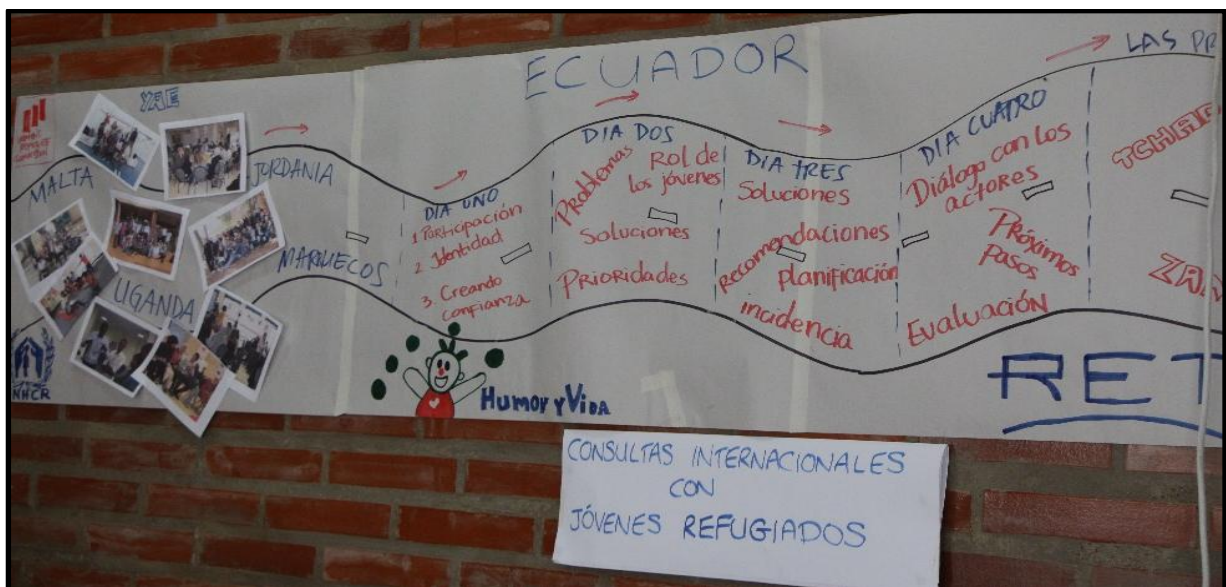 ECUADOR
LAS PR
YAE
MALTA
JORDANIA
MARRUECOS
UGANDA
NHCR
DIA UNO
1. Participación
2. Identidad
3. Creando
confianza
DIA DOS
Problemas
Rol de
los jóvenes
Soluciones
Prioridades
DIA TRES
Soluciones
Recomendaciones
planificación
incidencia
DIA CUATRO
Diálogo con los
actores
Próximos
Pasos
Evaluación
TCHA
ZA
RET
HUMOR Y VIDA
CONSULTAS INTERNACIONALES
CON
JÓVENES REFUGIADOS